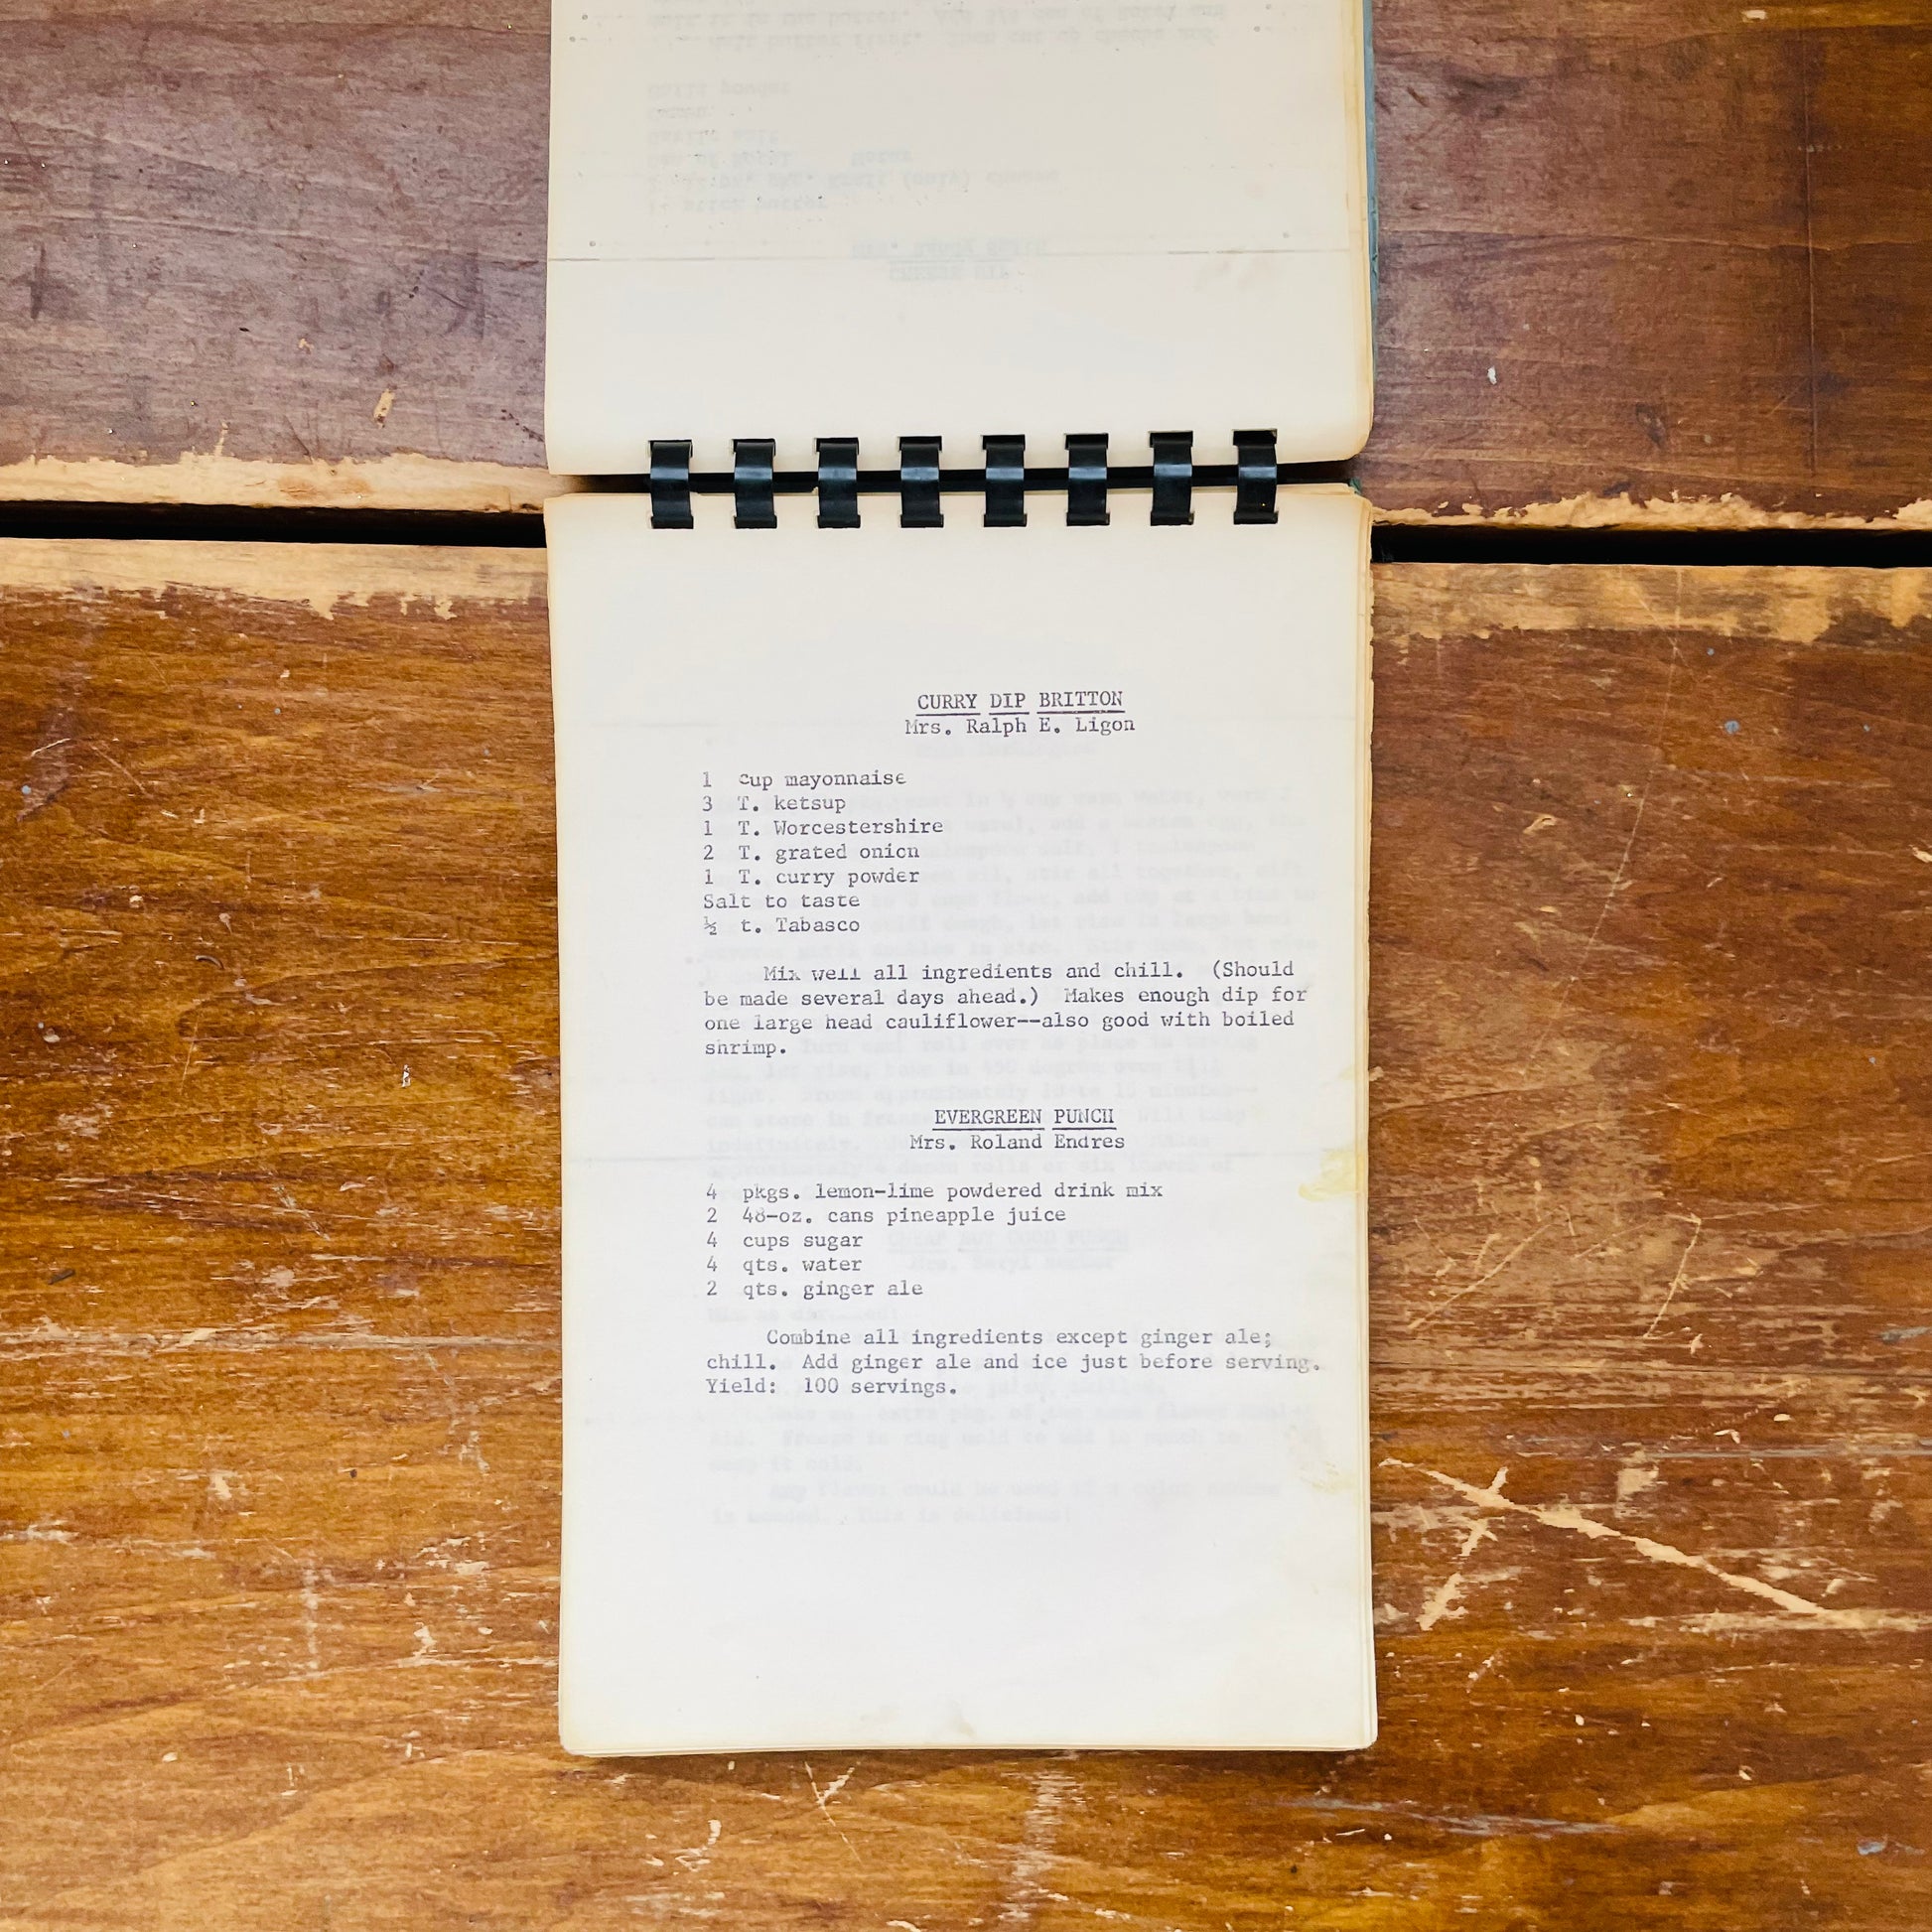 CURRY DIP BRITTON
Mrs. Ralph E. Ligon
1 cup mayonnaise
3 T. ketsup
1 T. Worcestershire
2 T. grated onion
1 T. curry powder
Salt to taste
½ t. Tabasco
Mix well all ingredients and chill. (Should
be made several days ahead.) Makes enough dip for
one large head cauliflower--also good with boiled
shrimp.
EVERGREEN PUNCH
Mrs. Roland Endres
4 pkgs. lemon-lime powdered drink mix
2 48-oz. cans pineapple juice
4 cups sugar
4 qts. water
2 qts. ginger ale
Combine all ingredients except ginger ale;
chill. Add ginger ale and ice just before serving.
Yield: 100 servings.